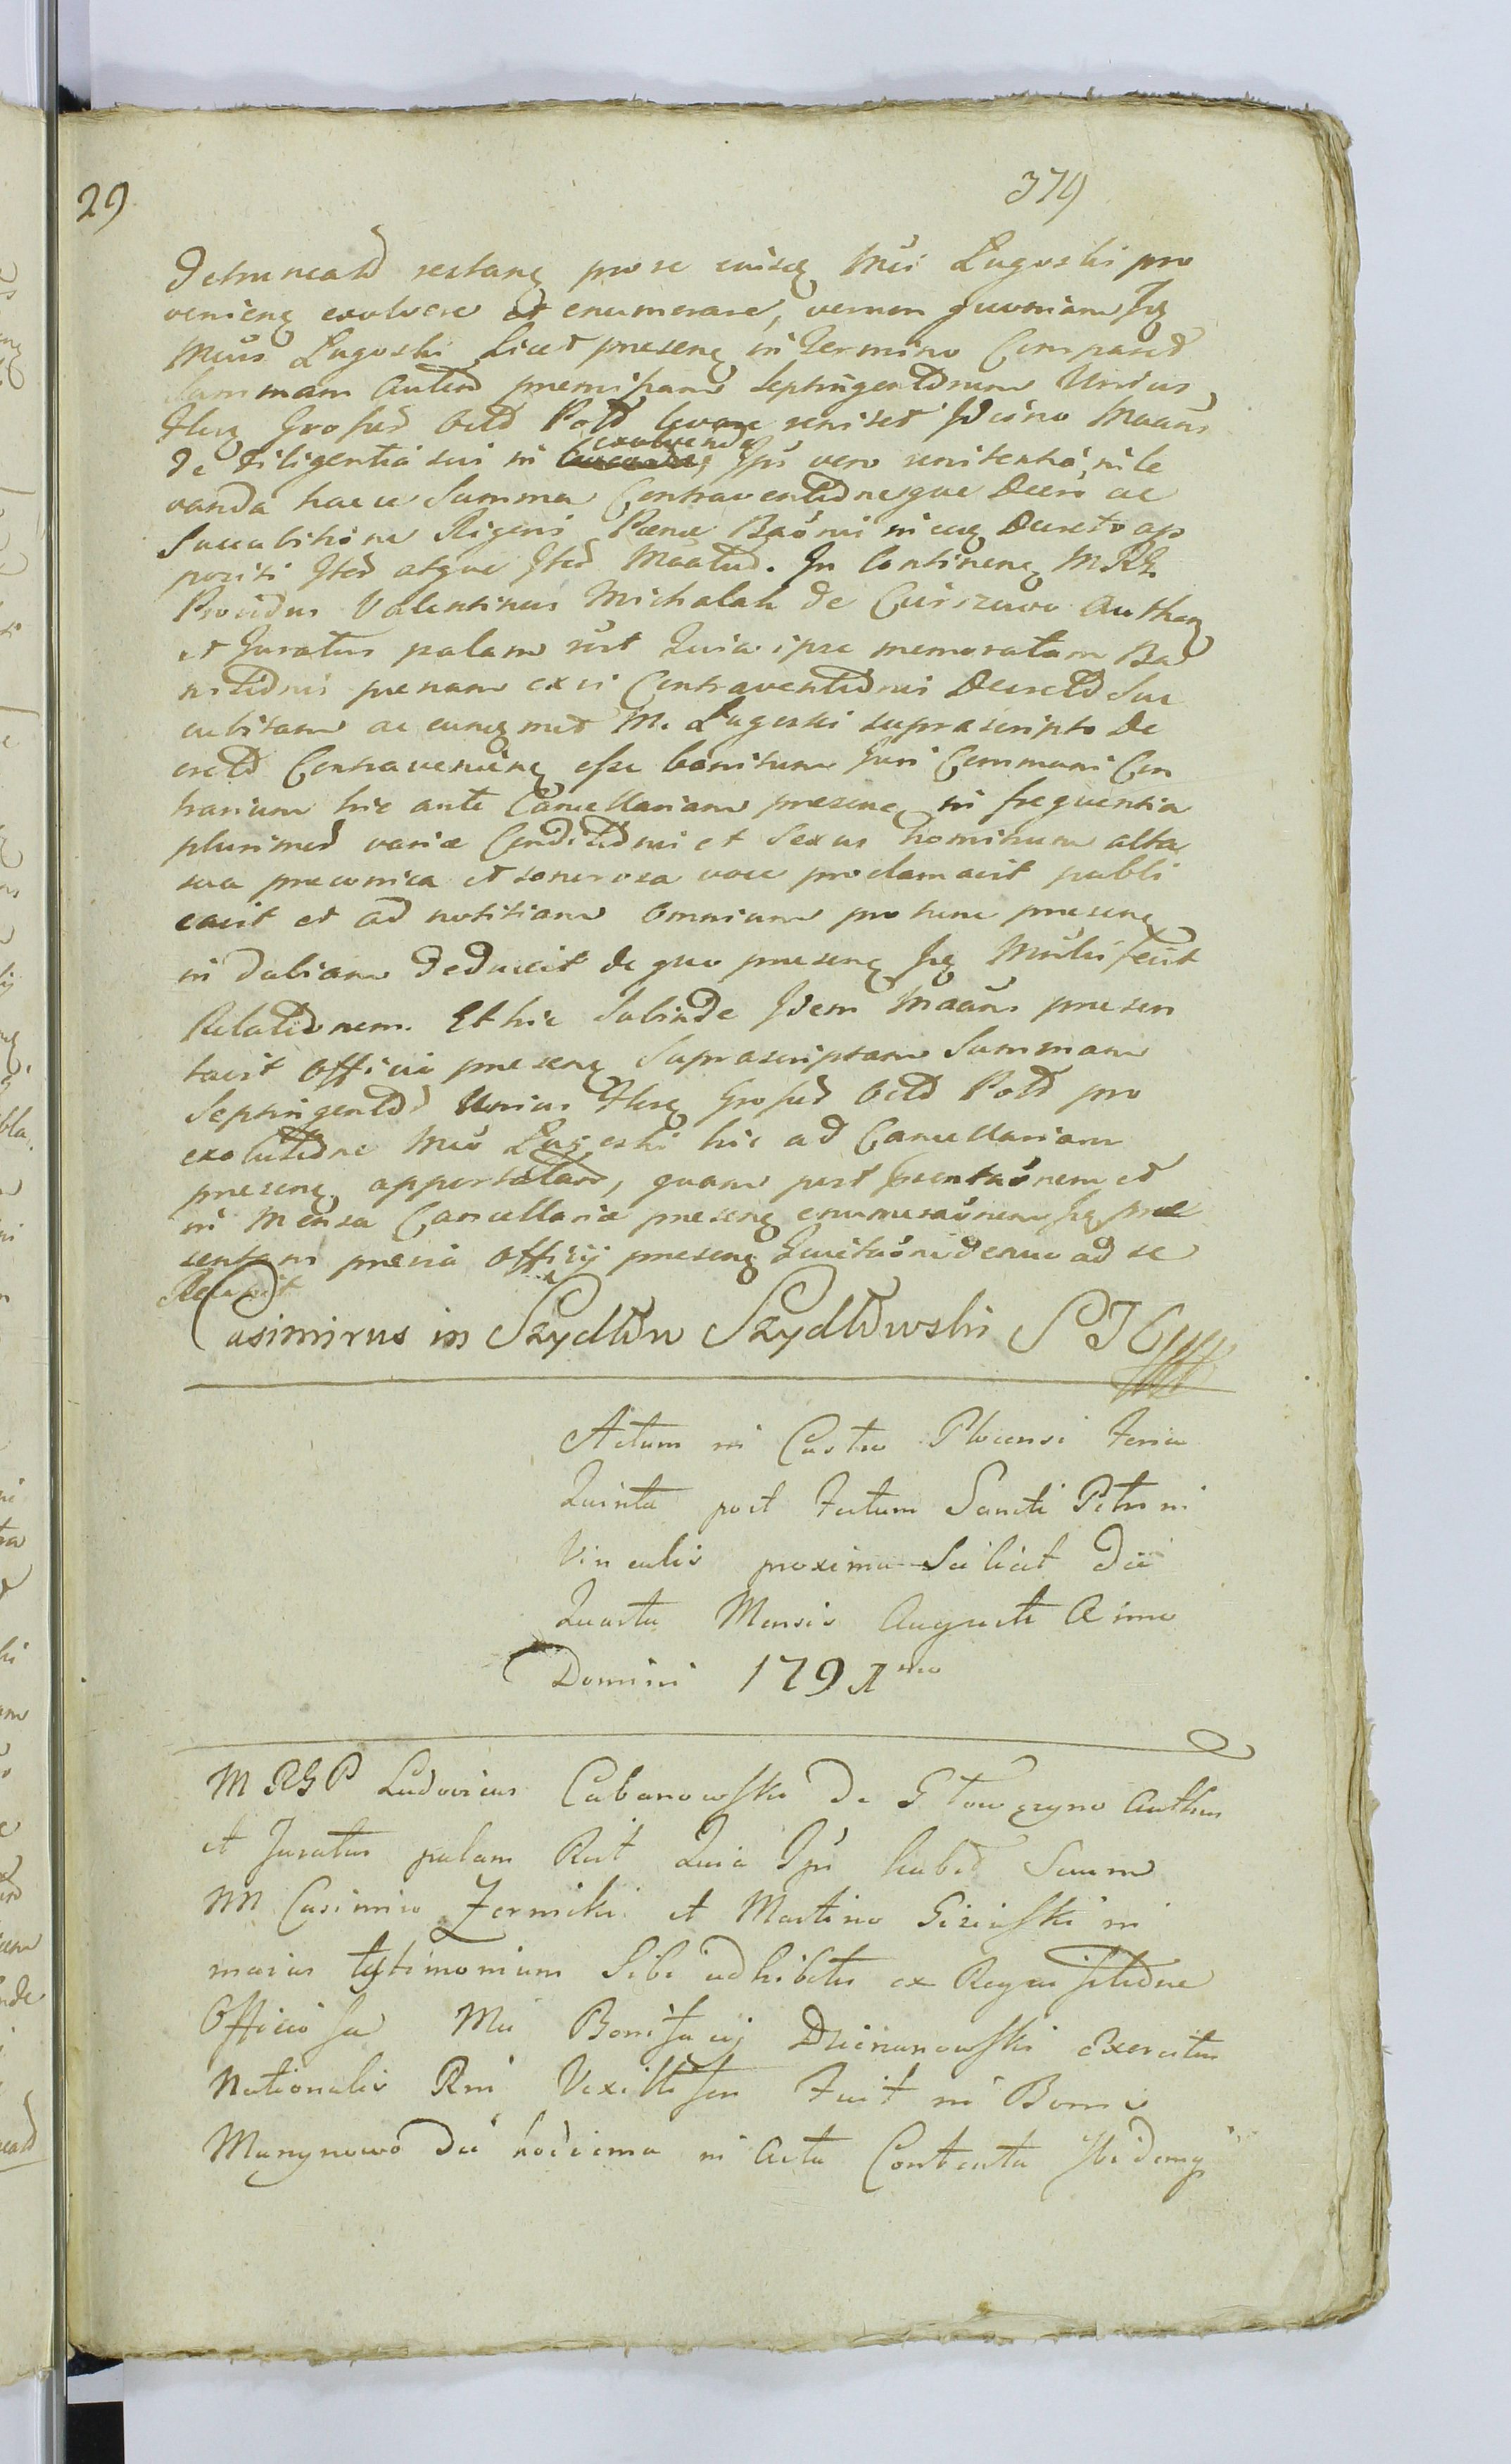 29
379
Detruncatd restanę pro se cuiscę Mci Ługoski pro
venienę exolvere et enumerare, verum quoniam Ję
Mcus Ługoski licet presenę in Termino Comparet
Summam autem premissam Septingentorum Unius
Fleręn Grossed Octd Pold levare renitet Ideirco Maaus
De Diligentia sui in exolvenda, Ipi vero renitentia, in le
vanda haece Summa Contraventdnesque Decri ac
Succubitióne Rigoris Pænæ Banni in cuę Decreto ap
positi Sted atque Sted Maatud. In Continenę MRG.
Providus Valentinus Michalak de Ciirszewo Authen
et Juratus palam rcit Quia ipse memoratam Ba
nitidnis penam ex vi Contraventidnis Decretd Suc
cubitam ac eunę met M. Ługoski suprascripto De
cretd Contravenienę esse bonitum Juri Communi Con
trarium hic ante Cancellariam presenę in frequentia
plurimed variæ Conditidnis et Sexus hominum alta
sua preconica et sonorosa voce proclamavit publi
cavit et ad notitiam omnium pro tunc presenę
in dubiam deduxit de quo presenę Ję Mnlis fecit
Relatidnem. Et hic Subinde Idem Maaus presen
tavit Officio presenę Suprascriptam Summam
Septingentdd Unius Flerę Grossed Octd Pold pro
exolutidne Mco Ługoski hic ad Cancellariam
presenę apportatam, quam post psentaónem et
in Mensa Cancellariæ presenę enumeraónem Ję præ
sentam previa Officij presenę Quietaóni denuo ad se
Recepit
Casimirus in Szydłow Szydłowski
Actum in Castro Plocensi Feria
Quinta post Festum Sancti Petri in
Vinculis proxima Scilicet Die
Quarta Mensis Augusti Anno
Domini 1791mo
MRGP Ludovicus Cabanowski De Głowczyno Authus
et Juratus palam Rcit Quia Ips habit Secum
NN Casimiro Zernicki et Martino Giziński in
maius testimonium Sibi adhibitis ex Requisitidne
Officiosa Mci Bonifacij Dzicrzanowski Exercitus
Nationalis Rni Vexilliferi Fuit in Bonis
Manynowo Die hodierna in Acta Contenta Ibidemę